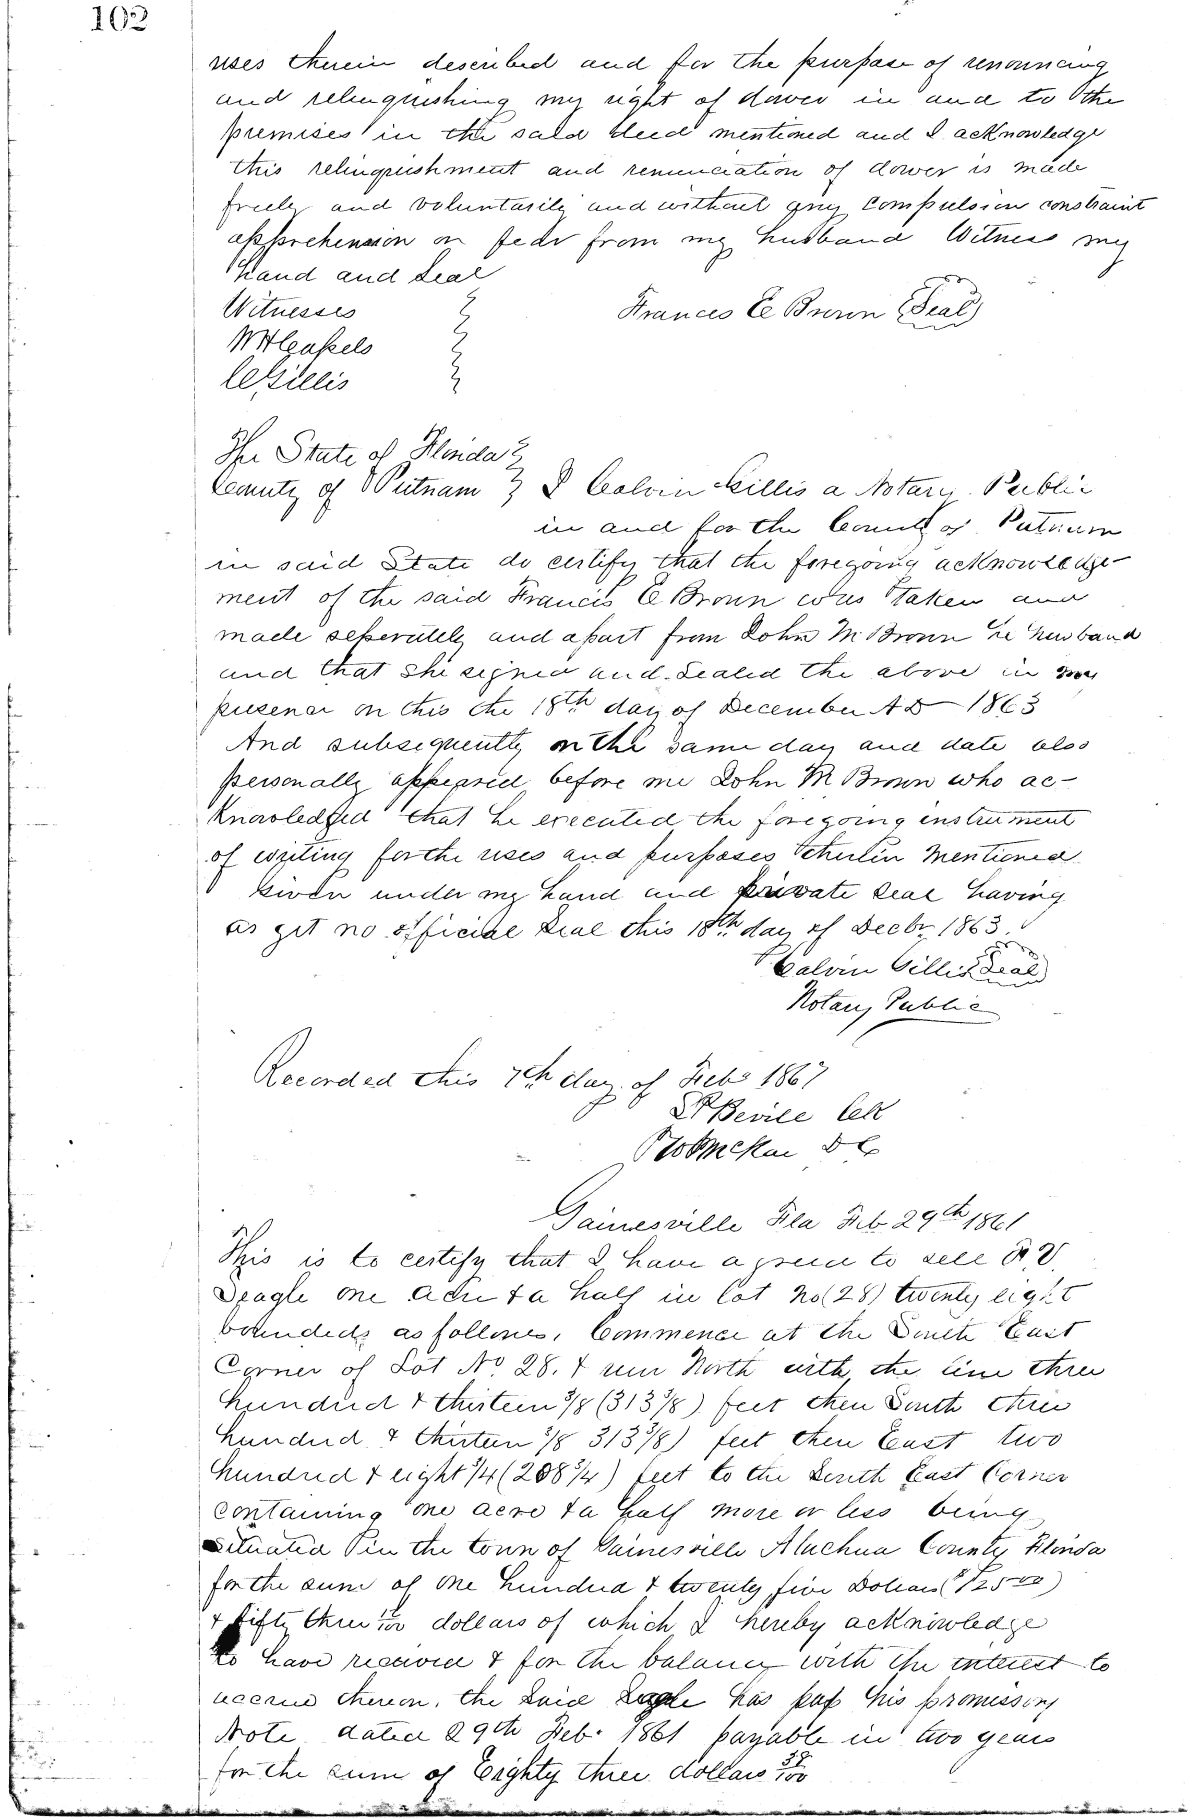 102
uses therein described and for the purpose of renouncing
and relinquishing my right of dower in and to the
premises in the said deed mentioned and I acknowledge
this relinquishment and renunciation of dower is made
freely and voluntarily and without any compulsion constraint
apprehension or fear from my husband Witness my
hand and seal
Witnesses
Frances E Brown (Seal)
C Gillis
The State of Florida
County of Putnam I Calvin Gillis a Notary Public
in and for the County of Putnam
in said State do certify that the foregoing acknowledge-
ment of the said Francis E Brown was taken and
made seperately and apart from John M Brown he husband
and that she signed and sealed the above in my
presence on this the 18th day of December AD 1863
And subsequently on the same day and date also
personally appeared before me John M Brown who ac-
knowledged that he executed the foregoing instrument
of writing for the uses and purposes therein mentioned
Given under my hand and private seal having
as yet no official seal this 18th day of Decbr 1863.
Calvin Gillis (Seal)
Notary Public
Recorded this 7th day of Feby 1867
Bevill Clk
DC
Gainesville Fla Feb 29th 1861
This is to certify that I have agreed to sell A. V.
Seagle one acre & a half in Lot No (28) twenty eight
bounded as follows. Commence at the South East
Corner of Lot No. 28. & run North with the line three
hundred & thirteen 3/8 (313 3/8) feet then South three
hundred & thirteen 3/8 313 3/8) feet then East two
hundred & eight 3/4 (208 3/4) feet to the South East Corner
containing one acre & a half more or less being
situated in the town of Gainesville Alachua County Florida
for the sum of one hundred & twenty five Dollars ($125 00)
& fifty three dollars of which I hereby acknowledge
to have received & for the balance with the interest to
accrue thereon, the said Seagle has his promissory
Note dated 29th Feb. 1861 payable in two years
for the sum of Eighty three dollars 38/100